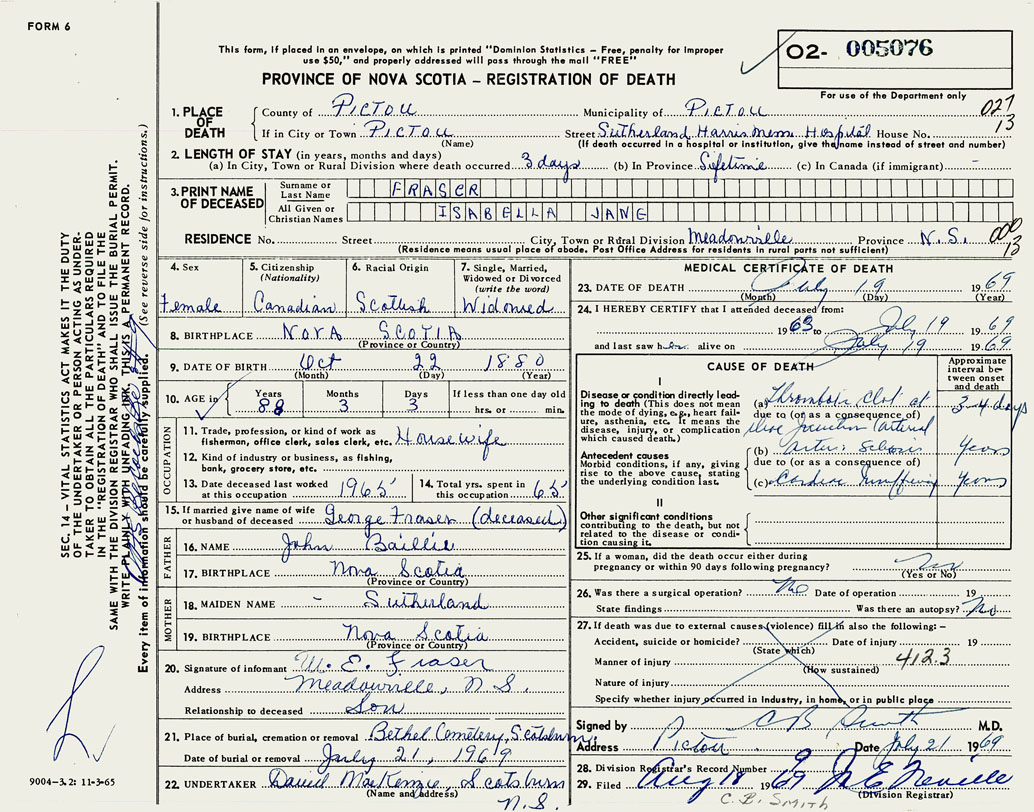 FORM 6
This form, if placed in an envelope, on which is printed "Dominion Statistics – Free, penalty for improper
use $50," and properly addressed will pass through the mail "FREE"
PROVINCE OF NOVA SCOTIA – REGISTRATION OF DEATH
O2- 005076
For use of the Department only
027
13
1. PLACE OF DEATH
County of PICTOU Municipality of PICTOU
If in City or Town PICTOU Street Sutherland Harris Mem. Hospital House No.
(Name) (If death occurred in a hospital or institution, give the name instead of street and number)
2. LENGTH OF STAY (in years, months and days)
(a) In City, Town or Rural Division where death occurred 3 days (b) In Province Lifetime (c) In Canada (if immigrant) -
3. PRINT NAME OF DECEASED
Surname or Last Name FRASER
All Given or Christian Names ISABELLA JANE
RESIDENCE No. Street City, Town or Rural Division Meadowville Province N.S.
000
13
(Residence means usual place of abode. Post Office Address for residents in rural parts not sufficient)
4. Sex Female
5. Citizenship (Nationality) Canadian
6. Racial Origin Scottish
7. Single, Married, Widowed or Divorced (write the word) Widowed
8. BIRTHPLACE NOVA SCOTIA
(Province or Country)
9. DATE OF BIRTH Oct 22 1880
(Month) (Day) (Year)
10. AGE in Years 88 Months 3 Days 3 If less than one day old hrs. or min.
OCCUPATION
11. Trade, profession, or kind of work as
fisherman, office clerk, sales clerk, etc. Housewife
12. Kind of industry or business, as fishing,
bank, grocery store, etc.
13. Date deceased last worked
at this occupation 1965
14. Total yrs. spent in
this occupation 65
15. If married give name of wife
or husband of deceased George Fraser (deceased)
FATHER
16. NAME John Baillie
17. BIRTHPLACE Nova Scotia
(Province or Country)
MOTHER
18. MAIDEN NAME - Sutherland
19. BIRTHPLACE Nova Scotia
(Province or Country)
20. Signature of informant W. E. Fraser
Address Meadowville, N.S.
Relationship to deceased Son
21. Place of burial, cremation or removal Bethel Cemetery, Scotsburn
Date of burial or removal July 21, 1969
22. UNDERTAKER David MacKenzie, Scotsburn
(Name and address) N.S.
MEDICAL CERTIFICATE OF DEATH
23. DATE OF DEATH July 19 1969
(Month) (Day) (Year)
24. I HEREBY CERTIFY that I attended deceased from:
1963 to July 19 1969
and last saw her alive on July 19 1969.
CAUSE OF DEATH
Approximate interval between onset and death
I
Disease or condition directly leading
to death (This does not mean
the mode of dying, e.g., heart failure,
asthenia, etc. It means the
disease, injury, or complication
which caused death.)
(a) Thrombosis clot at 3-4 days
due to (or as a consequence of)
Antecedent causes
Morbid conditions, if any, giving
rise to the above cause, stating
the underlying condition last.
(b) Years
due to (or as a consequence of)
(c) Cardiac Years
II
Other significant conditions
contributing to the death, but not
related to the disease or condition
causing it.
25. If a woman, did the death occur either during
pregnancy or within 90 days following pregnancy? No
(Yes or No)
26. Was there a surgical operation? No Date of operation 19
State findings Was there an autopsy? No
27. If death was due to external causes (violence) fill in also the following: –
Accident, suicide or homicide? Date of injury 19
(State which)
Manner of injury 412.3
(How sustained)
Nature of injury
Specify whether injury occurred in Industry, in home, or in public place
Signed by C B Smith M.D.
Address Pictou Date July 21 1969
28. Division Registrar's Record Number
29. Filed Aug 18 1969 Neville
(Division Registrar)
C. B. SMITH
SEC. 14 – VITAL STATISTICS ACT MAKES IT THE DUTY
OF THE UNDERTAKER OR PERSON ACTING AS UNDER-
TAKER TO OBTAIN ALL THE PARTICULARS REQUIRED
IN THE "REGISTRATION OF DEATH" AND TO FILE THE
SAME WITH THE DIVISION REGISTRAR WHO SHALL ISSUE THE BURIAL PERMIT.
WRITE PLAINLY WITH UNFADING INK. THIS IS A PERMANENT RECORD.
Every item of information should be carefully supplied. (See reverse side for instructions.)
9004–3.2: 11-3-65